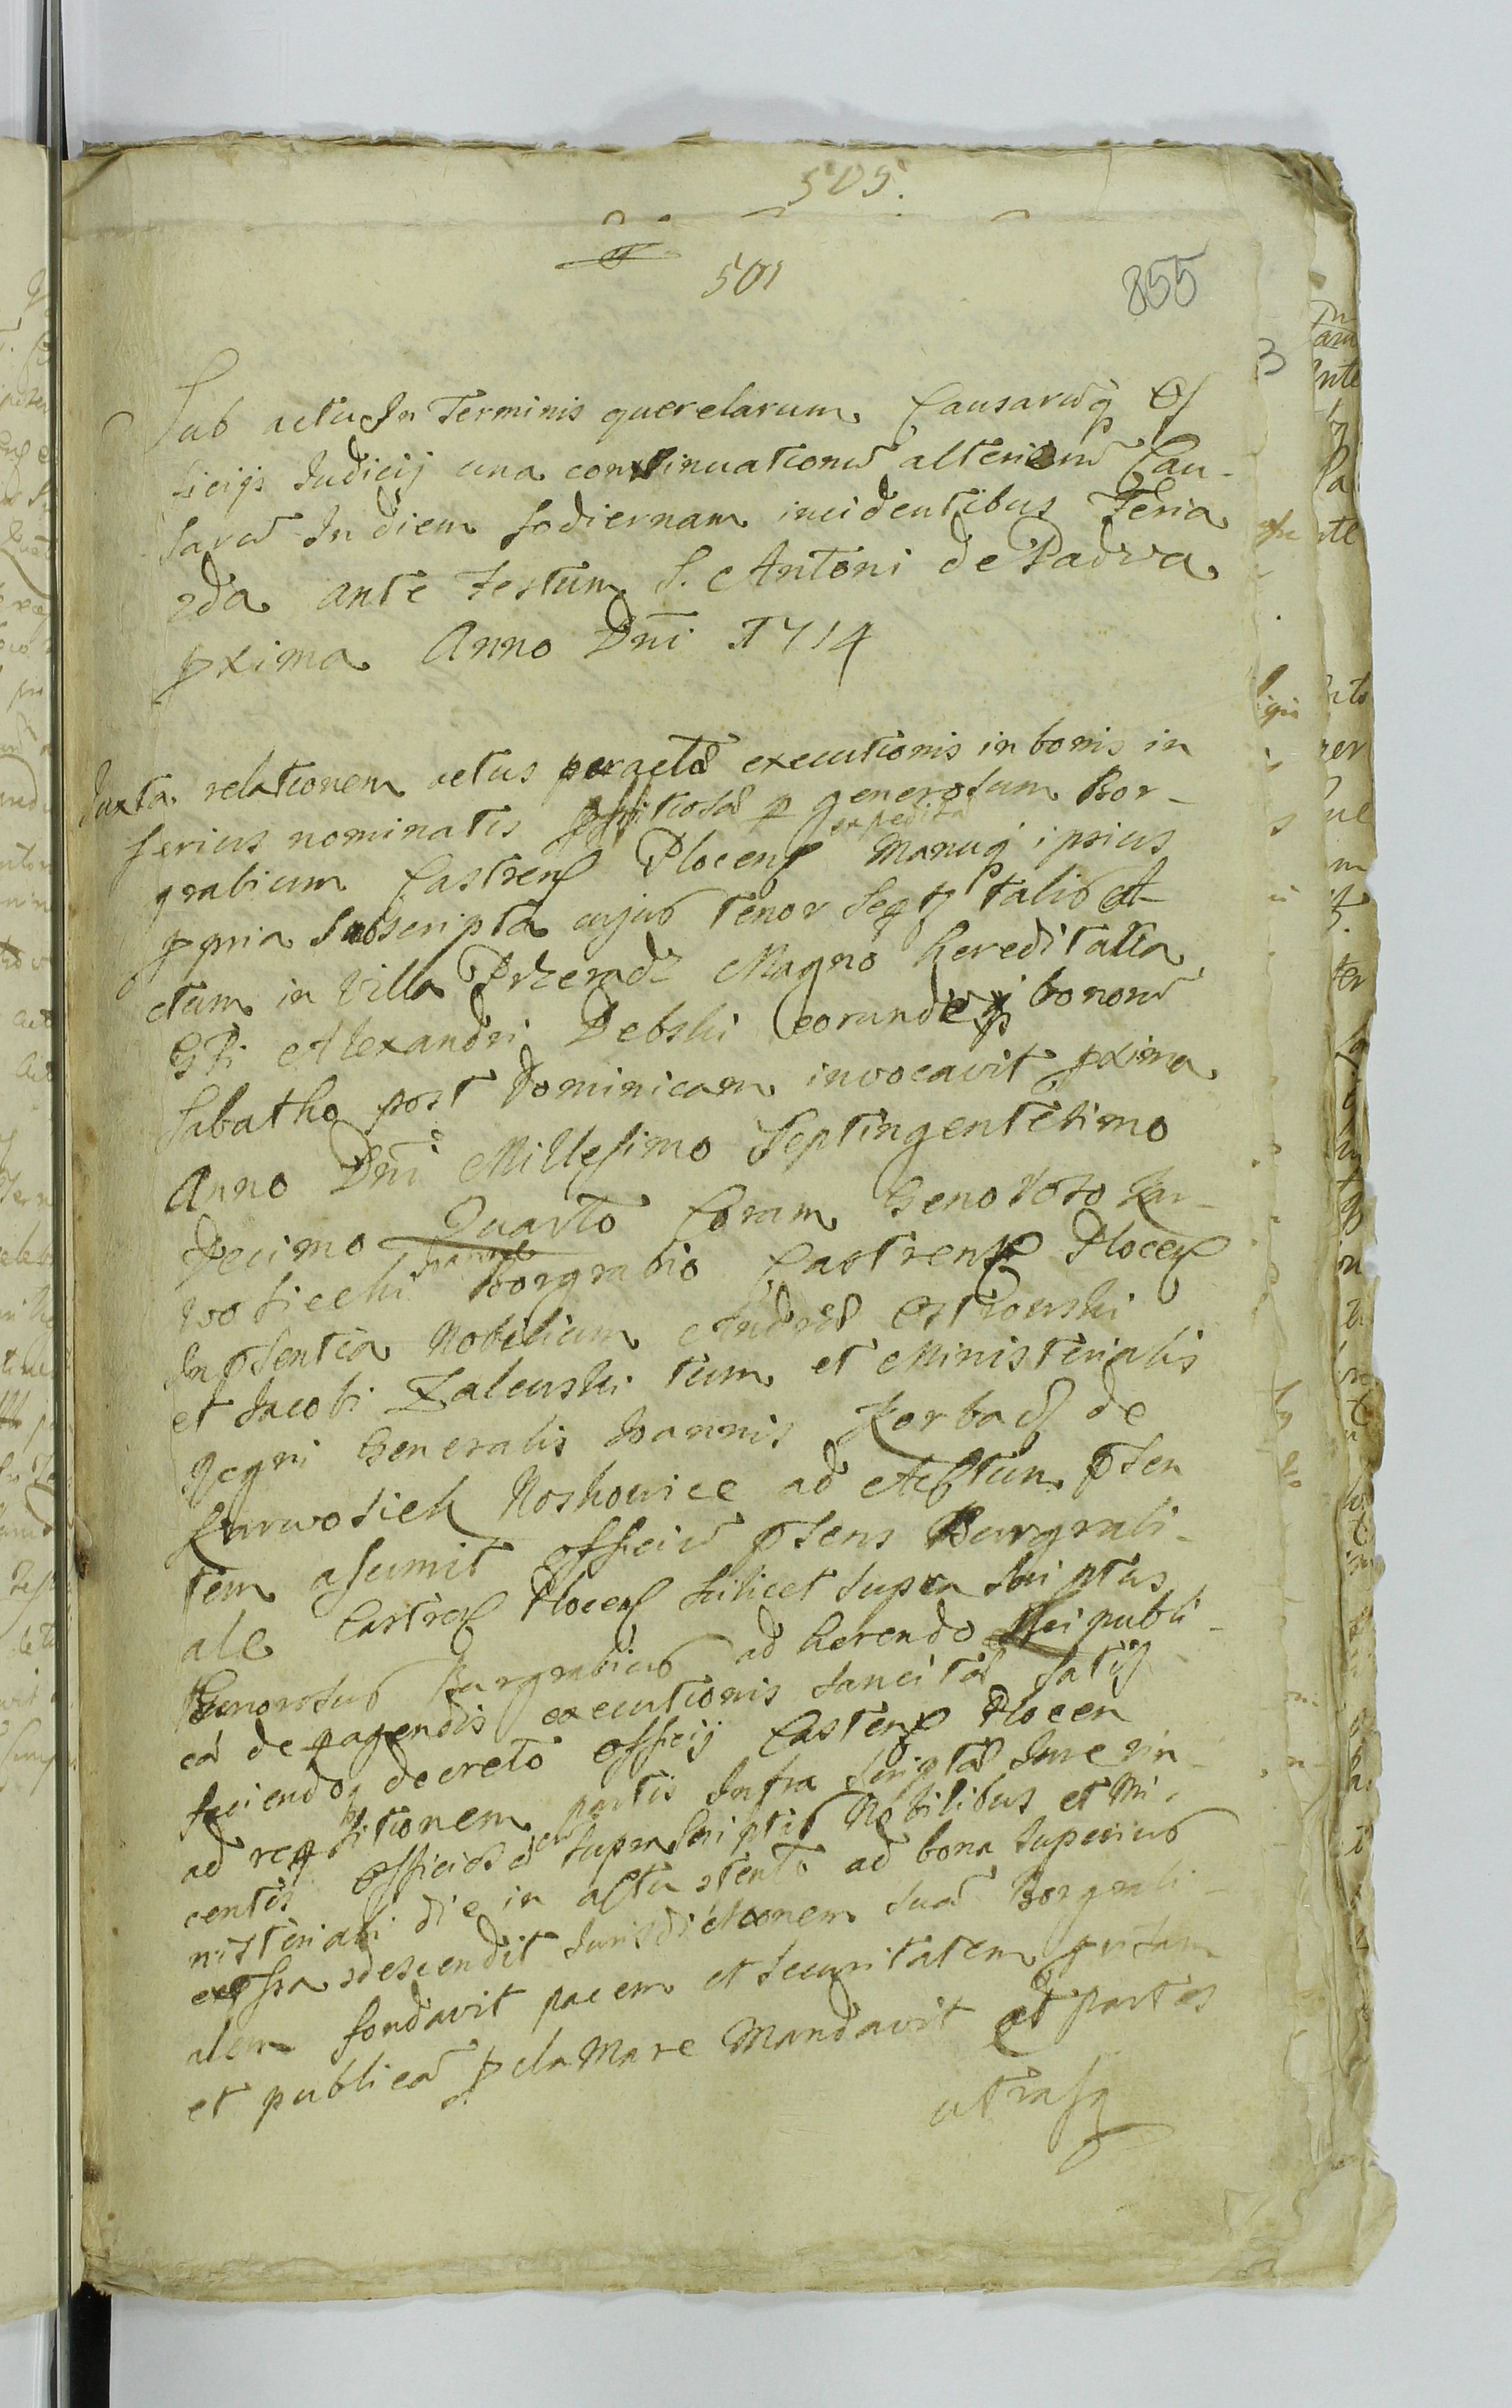 505.
501
855
Sub actu In Terminis querelarum Causarūq Of
ficijs Judicij una continuationū alteriorū Cau-
sarū In diem hodiernam incidentibus Feria
2da ante Festum S. Antoni de Padva
pxima Anno Dni 1714
Juxta relationem actus peractæ executionis in bonis in
ferius nominatis p generosum Bor-
expedita
grabium Castren Plocen Manuq ipsius
ppria Subscripta cujus tenor Seqtr talis A-
ctum in Villa Przeradz Magno hereditatia
Alexandri Debski eorundeq bonorū
Sabatho post Dominicam invocavit pxima
Anno Dni Millesimo Septingentesimo
Decimo Quarto Coram Generoso Kar-
wosiecki Borgrabio Castrens Plocen
In psentia Nobilium Andreæ Ostrowski
et Jacobi Zalewski tum et Ministerialis
Regni Generalis Joannis Korbacz de
Karwosiek Noskowice ad Actum psen
tem asumit officiū psens Burgrabi-
ale Castren Plocen scilicet supra scriptus
Generosus Burgrabius ad herendo Rei publi-
cæ de pagendis executionis sancitæ satis
faciendoq decreto officij Castren Plocen
ad reqsitionem partis Infra scriptæ Jure vin-
centis officiosæ cū supra scriptis Nobilibus et Mi-
nisteriali die in actu stento ad bona superius
expssa descendit Jurisdictionem suā Borgrabi-
alem fondavit pacem et securitatem
et publicā pclamare Mandavit et partes
utrasq